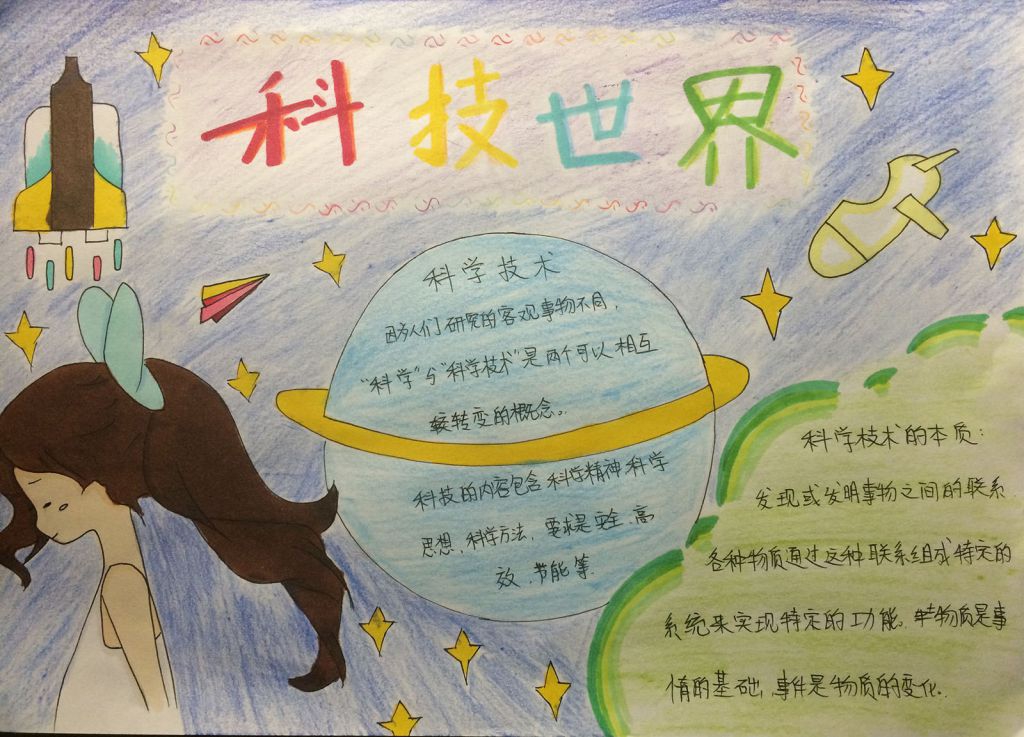 科技世界
科学技术
因为人们研究的客观事物不同,
“科学”与“科学技术”是两个可以相互
较转变的概念。
科技的内容包含科学精神科学
思想,科学方法,要求是安全、高
效、节能等
科学技术的本质:
发现或发明事物之间的联系
各种物质通过这种联系组成特定的
系统来实现特定的功能。物质是事
情的基础,事件是物质的变化。